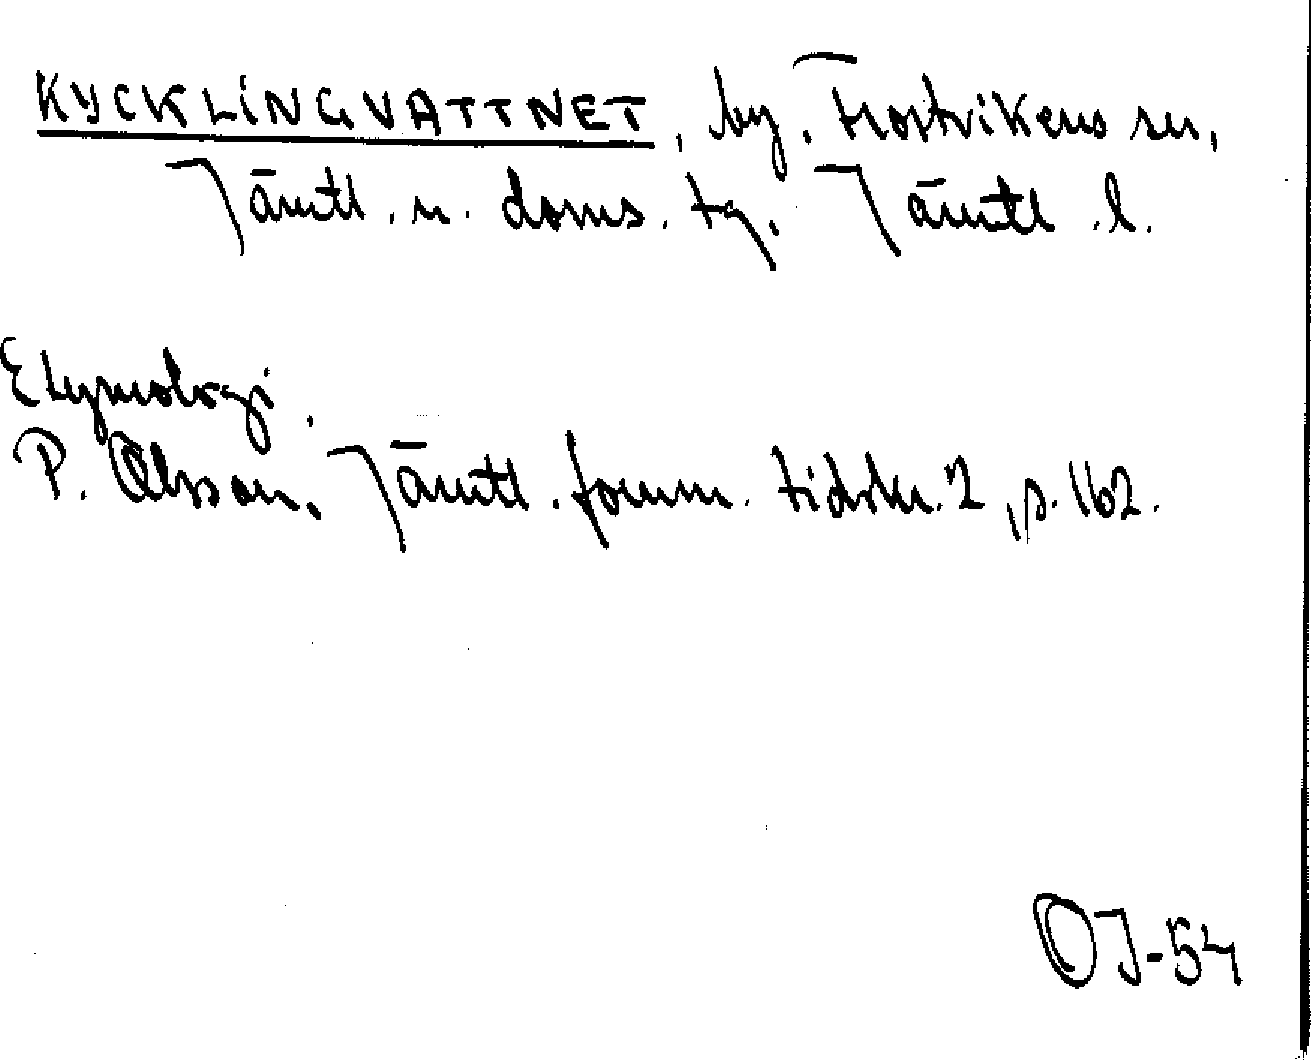 KYCKLINGVATTNET, by. Frostvikens sn,
Jämtl. n. doms. tg. Jämtl. l.
Etymologi.
P. Olsson, Jämtl. fornm. tidskr. 2, s. 162.
OJ-54